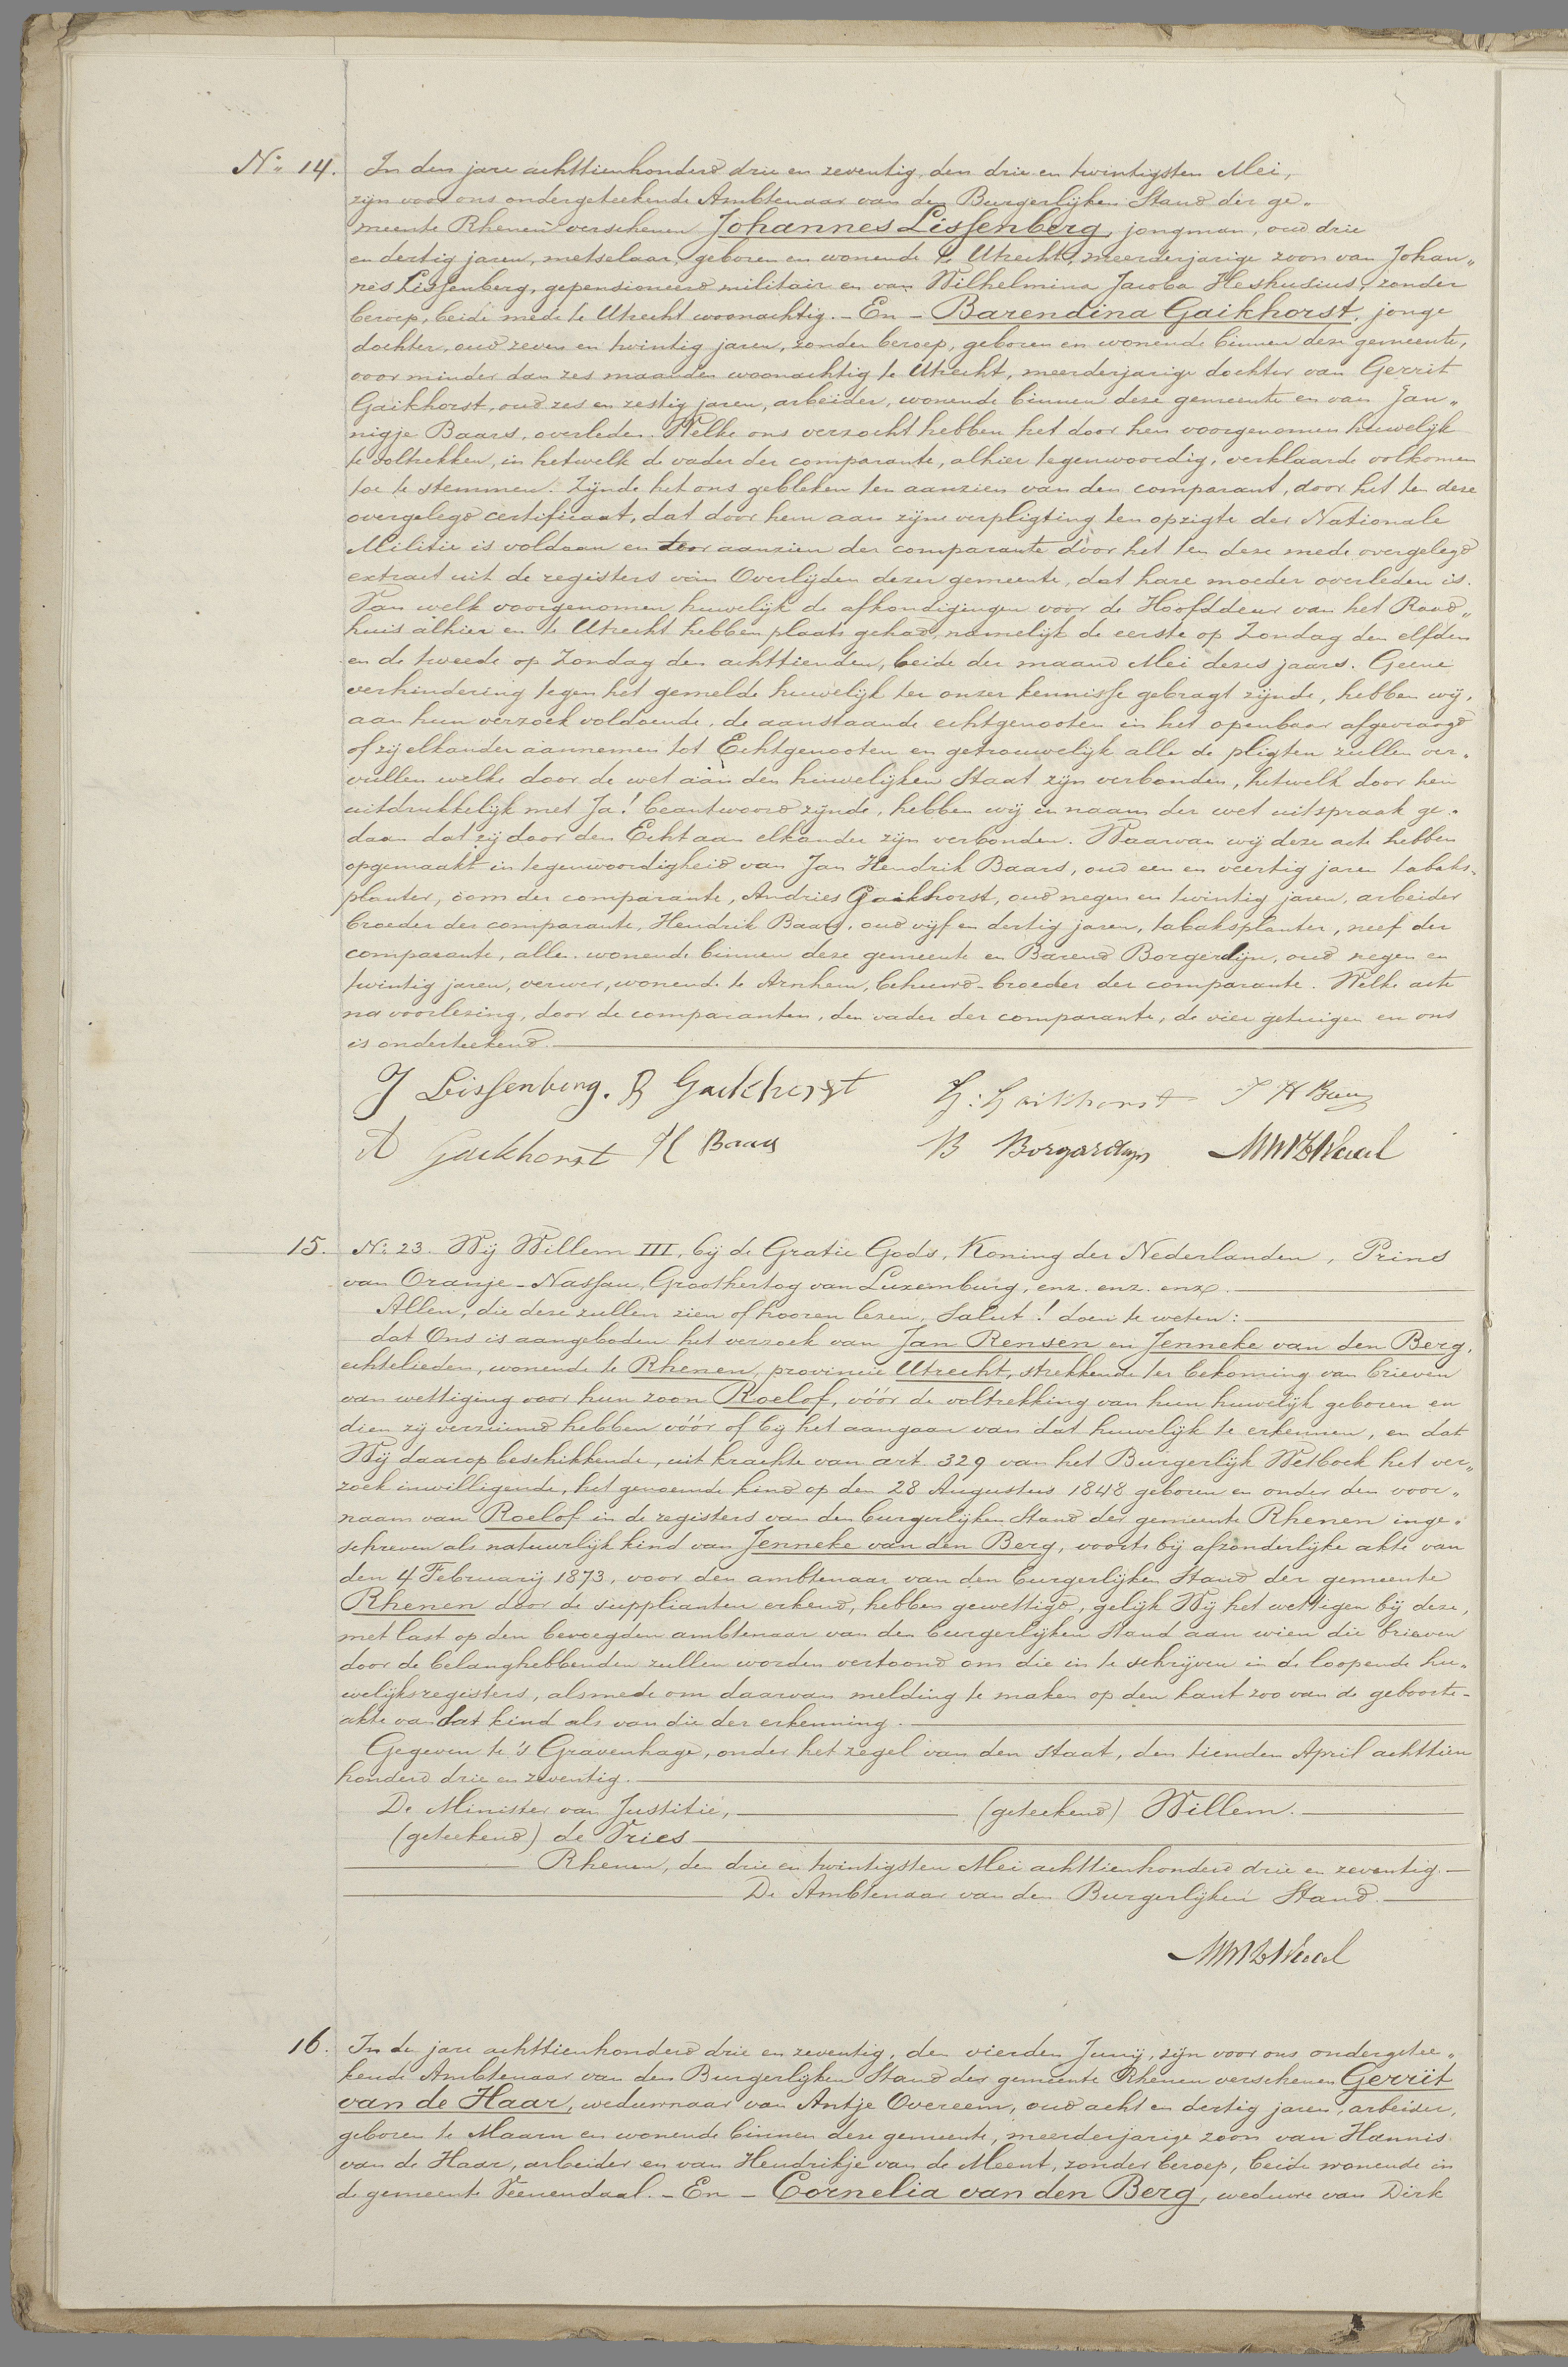 No 14. In den jare achttienhonderd drie en zeventig, den drie en twintigsten Mei,
zijn voor ons ondergeteekende Ambtenaar van den Burgerlijken Stand der ge„
meente Rhenen verschenen Johannes Lissenberg, jongman, oud drie
en dertig jaren, metselaar, geboren en wonende te Utrecht, meerderjarige zoon van Johan„
nes Lissenberg, gepensioneerd militair en van Wilhelmina Jacoba Heshusius, zonder
beroep, beide mede te Utrecht woonachtig. - En - Barendina Gaikhorst, jonge
dochter, oud zeven en twintig jaren, zonder beroep, geboren en wonende binnen deze gemeente,
voor minder dan zes maanden woonachtig te Utrecht, meerderjarige dochter van Gerrit
Gaikhorst, oud zes en zestig jaren, arbeider, wonende binnen deze gemeente en van Jan„
nigje Baars, overleden. Welke ons verzocht hebben het door hen voorgenomen huwelijk
te voltrekken, in hetwelk de vader der comparante, alhier tegenwoordig, verklaarde volkomen
toe te stemmen. Zijnde het ons gebleken ten aanzien van den comparant, door het ten deze
overgelegd certificaat, dat door hem aan zijne verpligting ten opzigte der Nationale
Militie is voldaan en ter aanzien der comparante door het ten deze mede overgelegd
extract uit de registers van Overlijden dezer gemeente, dat hare moeder overleden is.
Van welk voorgenomen huwelijk de afkondigingen voor de Hoofddeur van het Raad„
huis alhier en te Utrecht hebben plaats gehad, namelijk de eerste op Zondag den elfden
en de tweede op Zondag den achttienden, beide der maand Mei dezes jaars. Geene
verhindering tegen het gemelde huwelijk ter onzer kennisse gebragt zijnde, hebben wij,
aan hun verzoek voldoende, de aanstaande echtgenooten in het openbaar afgevraagd
of zij elkander aannemen tot Echtgenooten en getrouwelijk alle de pligten zullen ver„
vullen welke door de wet aan den huwelijken Staat zijn verbonden, hetwelk door hen
uitdrukkelijk met Ja! beantwoord zijnde, hebben wij in naam der wet uitspraak ge„
daan dat zij door den Echt aan elkander zijn verbonden. Waarvan wij deze acte hebben
opgemaakt in tegenwoordigheid van Jan Hendrik Baars, oud een en veertig jaren tabaks„
planter, oom der comparante, Andries Gaikhorst, oud negen en twintig jaren, arbeider
broeder der comparante, Hendrik Baars, oud vijf en dertig jaren, tabaksplanter, neef der
comparante, allen wonende binnen deze gemeente en Barend Borgerdijn, oud negen en
twintig jaren, verwer, wonende te Arnhem, behuwd-broeder der comparante. Welke acte
na voorlezing, door de comparanten, den vader der comparante, de vier getuigen en ons
is onderteekend.
J Lissenberg. B Gaikhorst G: Gaikhorst J H Baars
A Gaikhorst H Baars B Borgardijn
15. No 23. Wij Willem III, bij de Gratie Gods, Koning der Nederlanden, Prins
van Oranje-Nassau, Groothertog van Luxemburg, enz. enz. enz.
Allen, die deze zullen zien of hooren lezen, Salut! doen te weten:
dat Ons is aangeboden het verzoek van Jan Rensen en Jenneke van den Berg,
echtelieden, wonende te Rhenen, provincie Utrecht, strekkende ter bekoming van brieven
van wettiging voor hun zoon Roelof, vóór de voltrekking van hun huwelijk geboren en
dien zij verzuimd hebben vóór of bij het aangaan van dat huwelijk te erkennen, en dat
Wij daarop beschikkende, uit krachte van art. 329 van het Burgerlijk Wetboek het ver„
zoek inwilligende, het genoemde kind op den 28 Augustus 1848 geboren en onder den voor„
naam van Roelof in de registers van den burgerlijken Stand der gemeente Rhenen inge„
schreven als natuurlijk kind van Jenneke van den Berg, voorts bij afzonderlijke akte van
den 4 February 1873, voor den ambtenaar van den burgerlijken Stand der gemeente
Rhenen door de supplianten erkend, hebben gewettigd, gelijk Wij het wettigen bij deze,
met last op den bevoegden ambtenaar van den burgerlijken Stand aan wien die brieven
door de belanghebbenden zullen worden vertoond om die in te schrijven in de loopende hu„
welijksregisters, alsmede om daarvan melding te maken op den kant zoo van de geboorte-
akte van dat kind als van die der erkenning.
Gegeven te 's Gravenhage, onder het zegel van den staat, den tienden April achttien
honderd drie en zeventig.
De Minister van Justitie, (geteekend) Willem.
(geteekend) de Vries
Rhenen, den drie en twintigsten Mei achttienhonderd drie en zeventig.
De Ambtenaar van den Burgerlijken Stand.
16. In den jare achttienhonderd drie en zeventig, den vierden Junij, zijn voor ons ondergetee„
kende Ambtenaar van den Burgerlijken Stand der gemeente Rhenen verschenen Gerrit
van de Haar, weduwnaar van Antje Overeem, oud acht en dertig jaren, arbeider,
geboren te Maarn en wonende binnen deze gemeente, meerderjarige zoon van Hannis
van de Haar, arbeider en van Hendrikje van de Meent, zonder beroep, beide wonende in
de gemeente Veenendaal. - En - Cornelia van den Berg, weduwe van Dirk